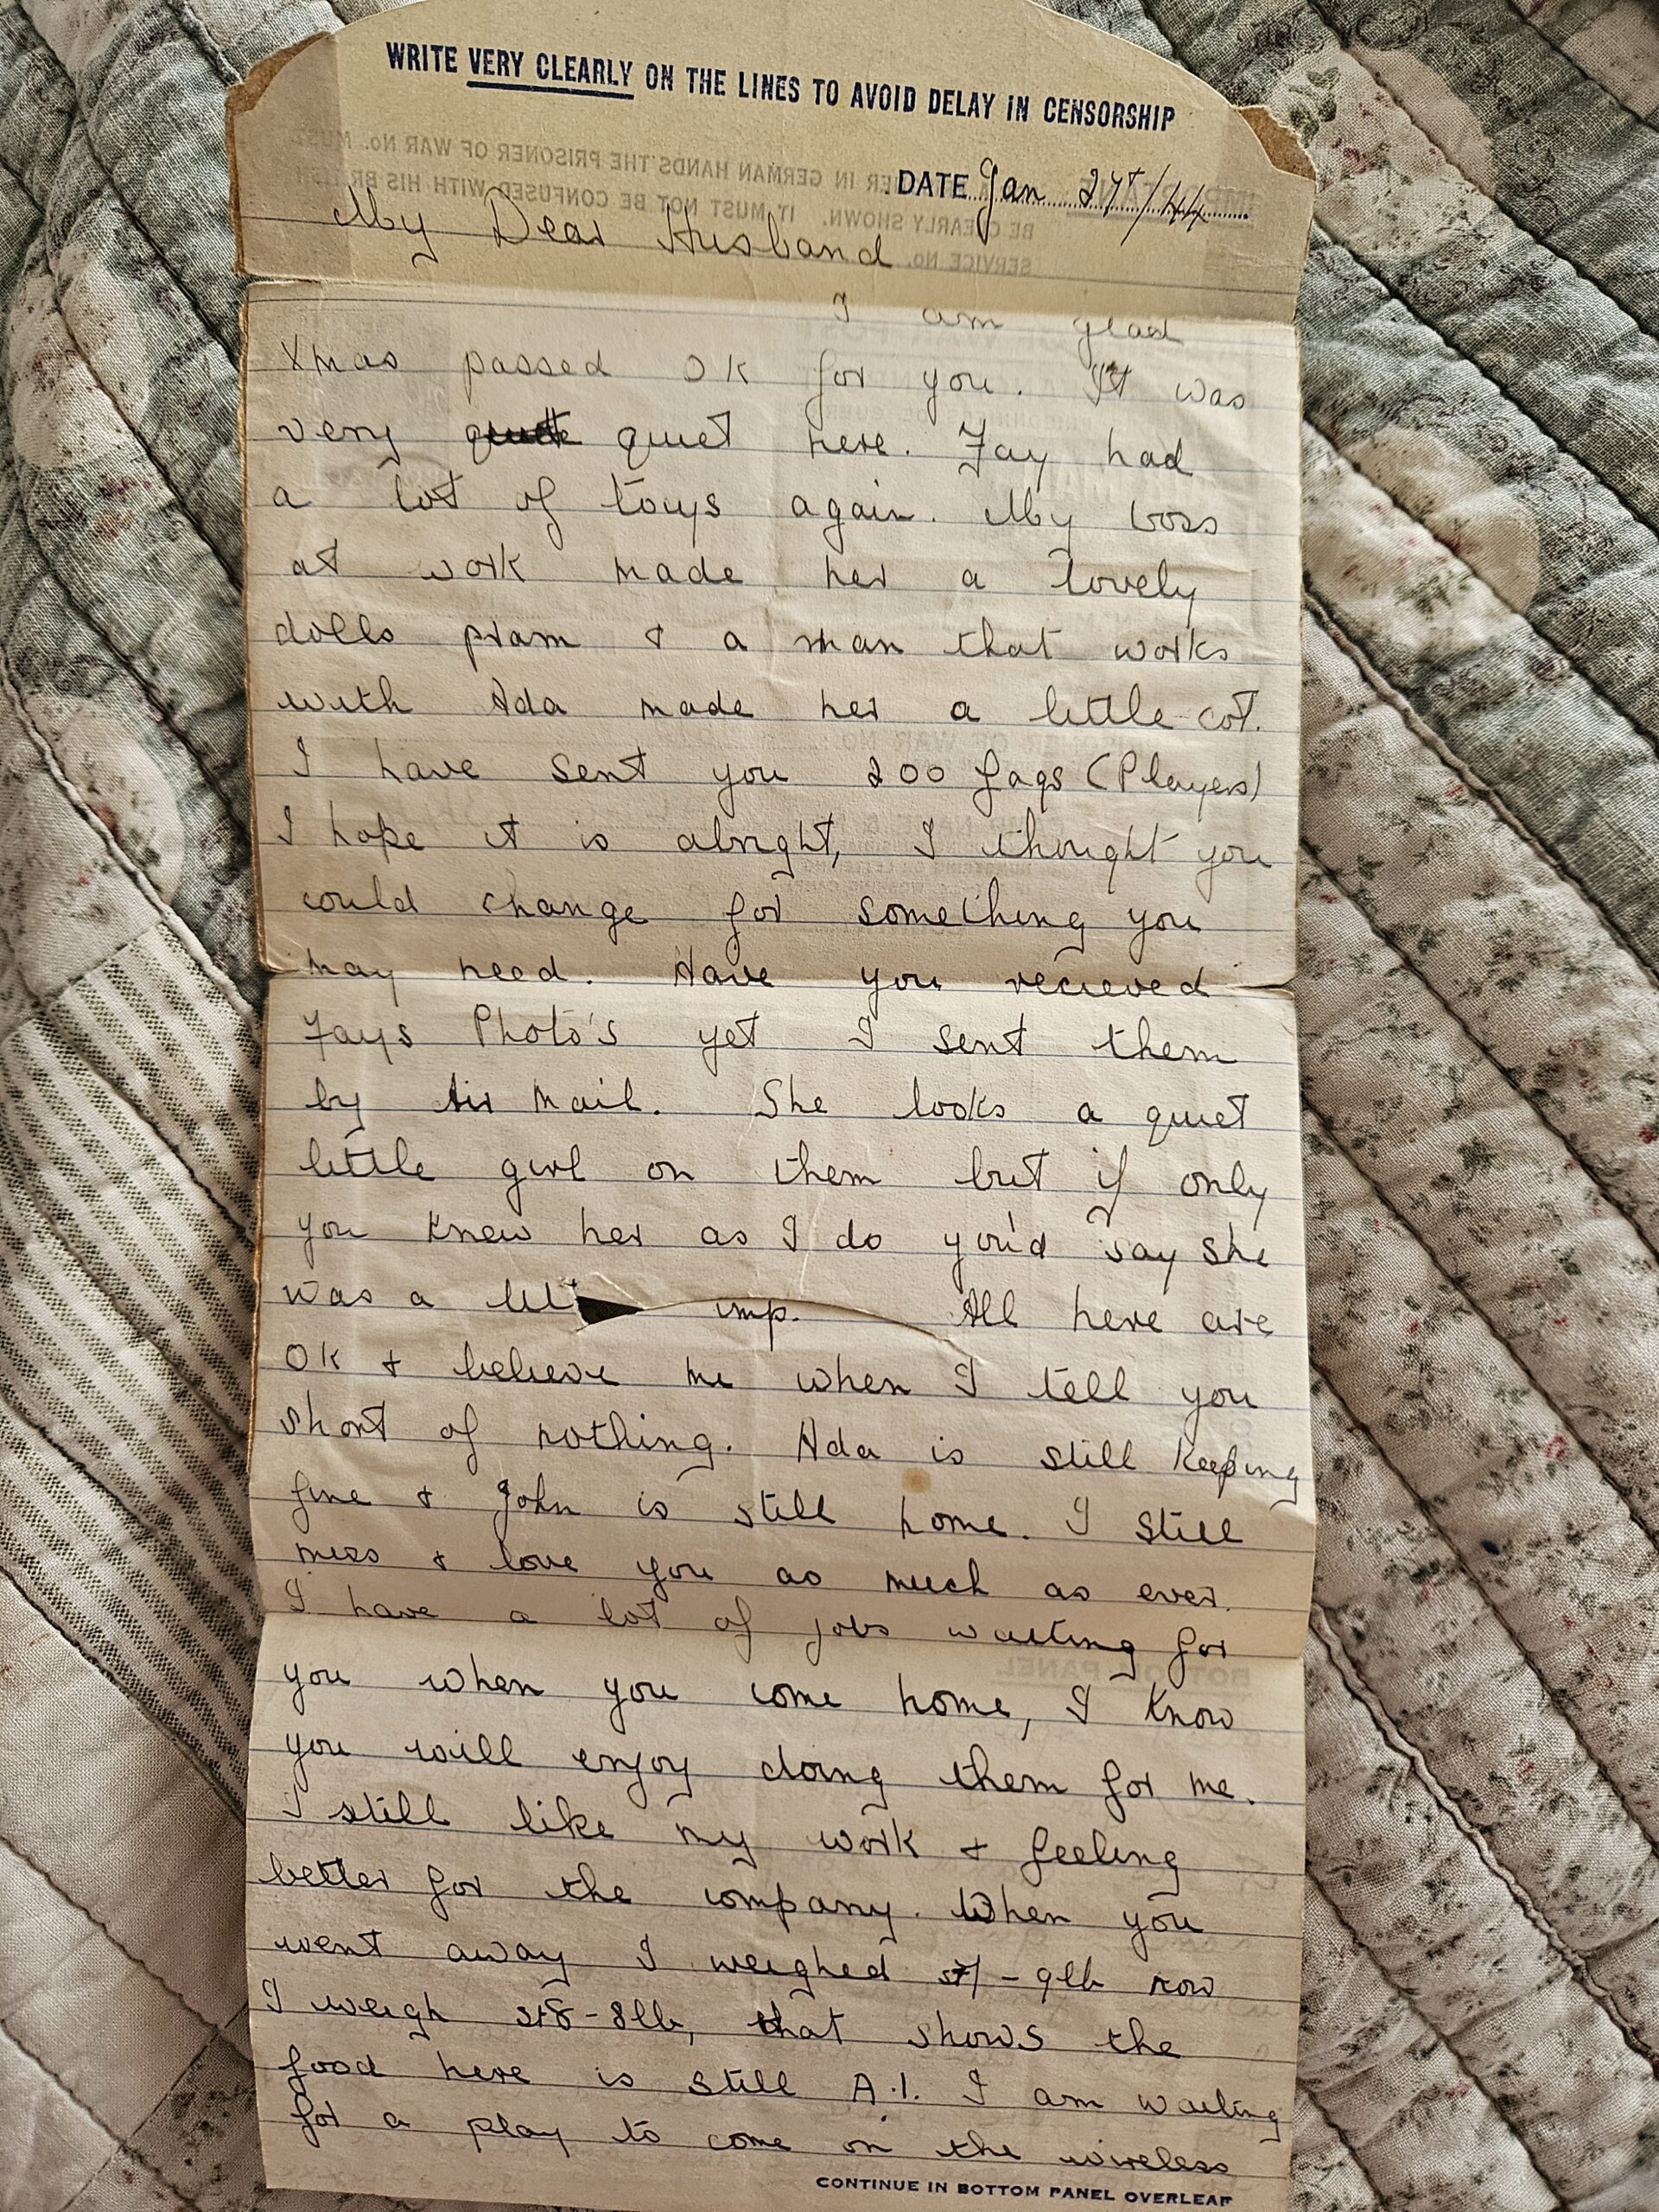 WRITE VERY CLEARLY ON THE LINES TO AVOID DELAY IN CENSORSHIP
DATE Jan 27th/44
My Dear Husband
I am glad
Xmas passed OK for you. It was
very quiet here. Fay had
a lot of toys again. My boss
at work made her a lovely
dolls pram & a man that works
with Ada made her a little cot.
I have sent you 200 fags (Players)
I hope it is alright, I thought you
could change for something you
may need. Have you recieved
Fays Photo's yet I sent them
by Air Mail. She looks a quiet
little girl on them but if only
you knew her as I do you'd say she
was a imp. All here are
OK & believe me when I tell you
short of nothing. Ada is still keeping
fine & John is still home. I still
miss & love you as much as ever.
I have a lot of jobs waiting for
you when you come home, I know
you will enjoy doing them for me.
I still like my work & feeling
better for the company. When you
went away I weighed st7-9lb now
I weigh st8-8lb, that shows the
food here is still A.1. I am waiting
for a play to come on the wireless
CONTINUE IN BOTTOM PANEL OVERLEAF